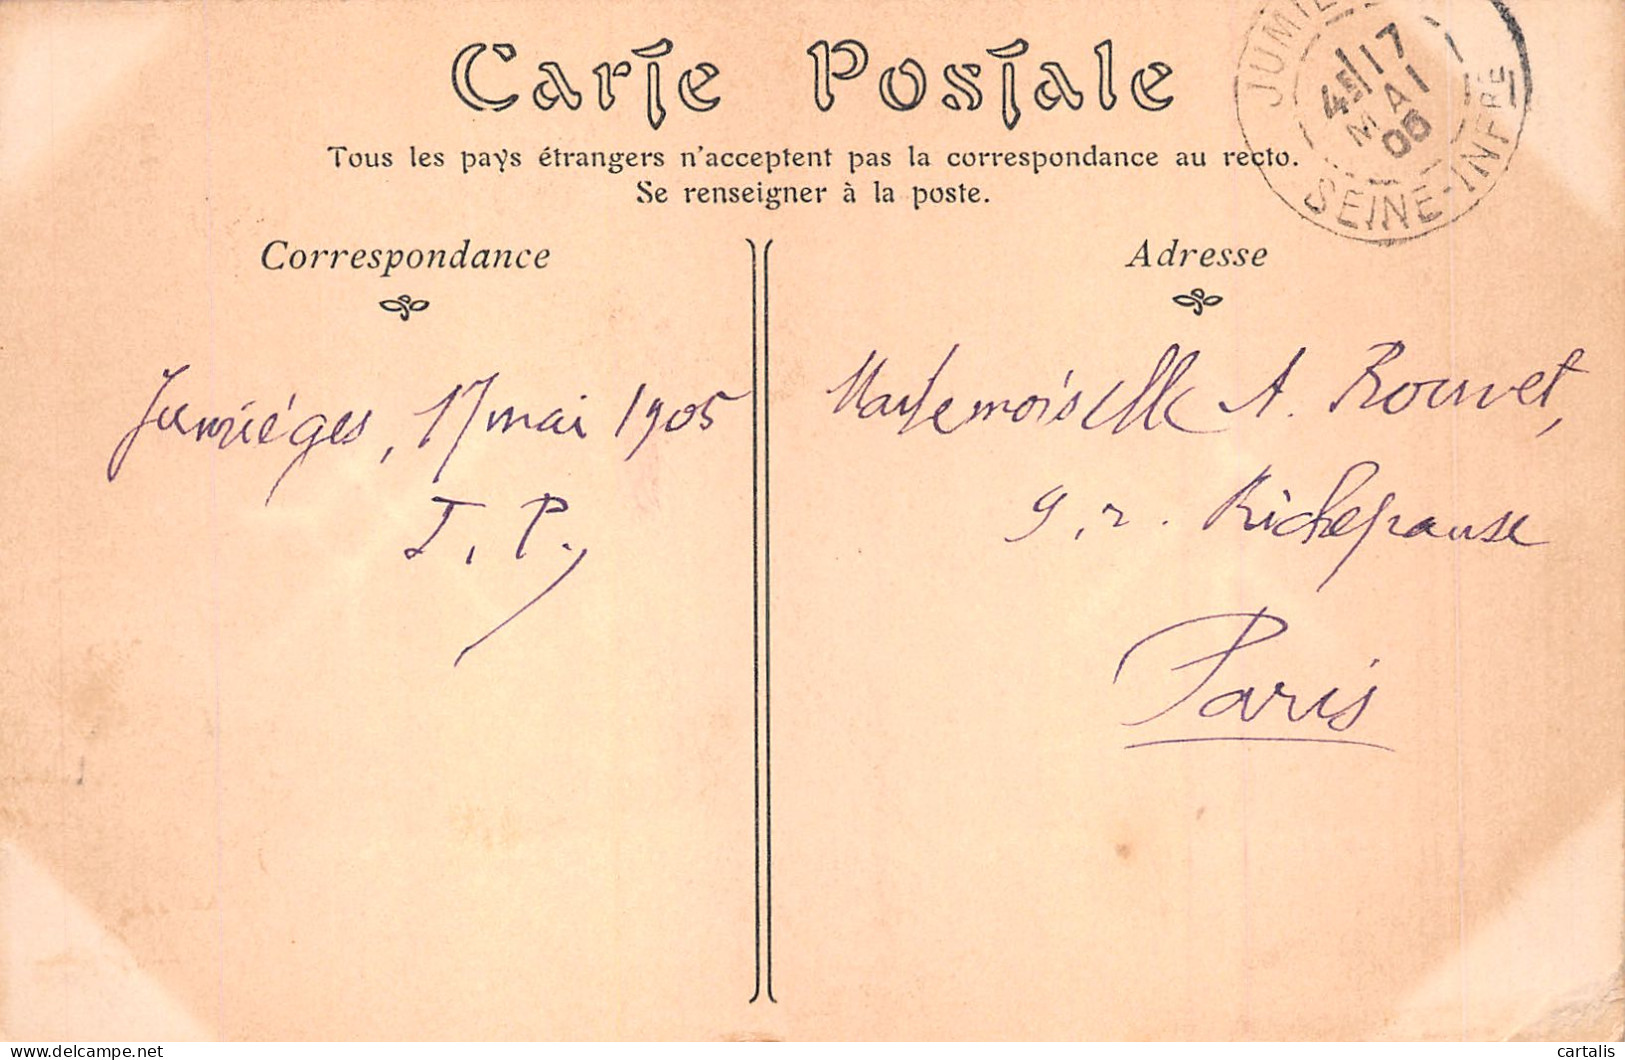 Carte Postale
Tous les pays étrangers n'acceptent pas la correspondance au recto.
Se renseigner à la poste.
JUMIÈ
4E 17
MAI
05
SEINE-INFRE
Correspondance
Jumiéges, 17 mai 1905
J. P.
Adresse
Mademoiselle A. Bouvet,
9, r. Richepanse
Paris
www.delcampe.net
cartalis